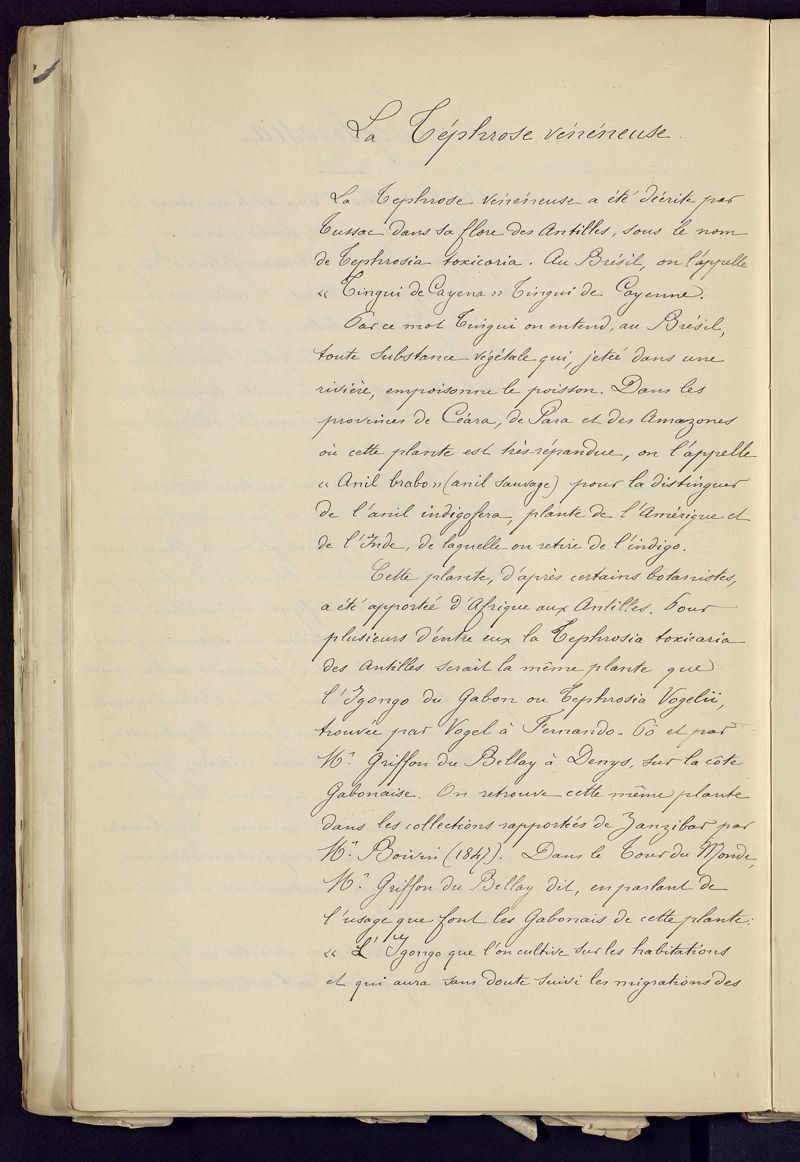 La Téphrose vénéneuse.
La Tephrose vénéneuse a été décrite par
Tussac dans sa flore des Antilles, sous le nom
de Tephrosia toxicaria. Au Brésil, on l'appelle
« Tingui de Cayena » Tingui de Cayenne.
Par ce mot Tingui on entend, au Brésil,
toute substance végétale qui, jetée dans une
rivière, empoisonne le poisson. Dans les
provinces de Céara, de Para et des Amazones
où cette plante est très-répandue, on l'appelle
« Anil brabo » (anil sauvage) pour la distinguer
de l'anil indigofera, plante de l'Amérique et
de l'Inde, de laquelle on retire de l'indigo.
Cette plante, d'après certains botanistes,
a été apportée d'Afrique aux Antilles. Pour
plusieurs d'entre eux la Tephrosia toxicaria
des Antilles serait la même plante que
l'Igongo du Gabon ou Tephrosia Vogelii,
trouvée par Vogel à Fernando-Pô et par
Mr. Griffon du Bellay à Denys, sur la côte
Gabonaise. On retrouve cette même plante
dans les collections rapportées de Zanzibar par
Mr. Boivin (1847). Dans le Tour du Monde,
Mr. Griffon du Bellay dit, en parlant de
l'usage que font les Gabonais de cette plante:
« L'Igongo que l'on cultive sur les habitations
et qui aura sans doute suivi les migrations des